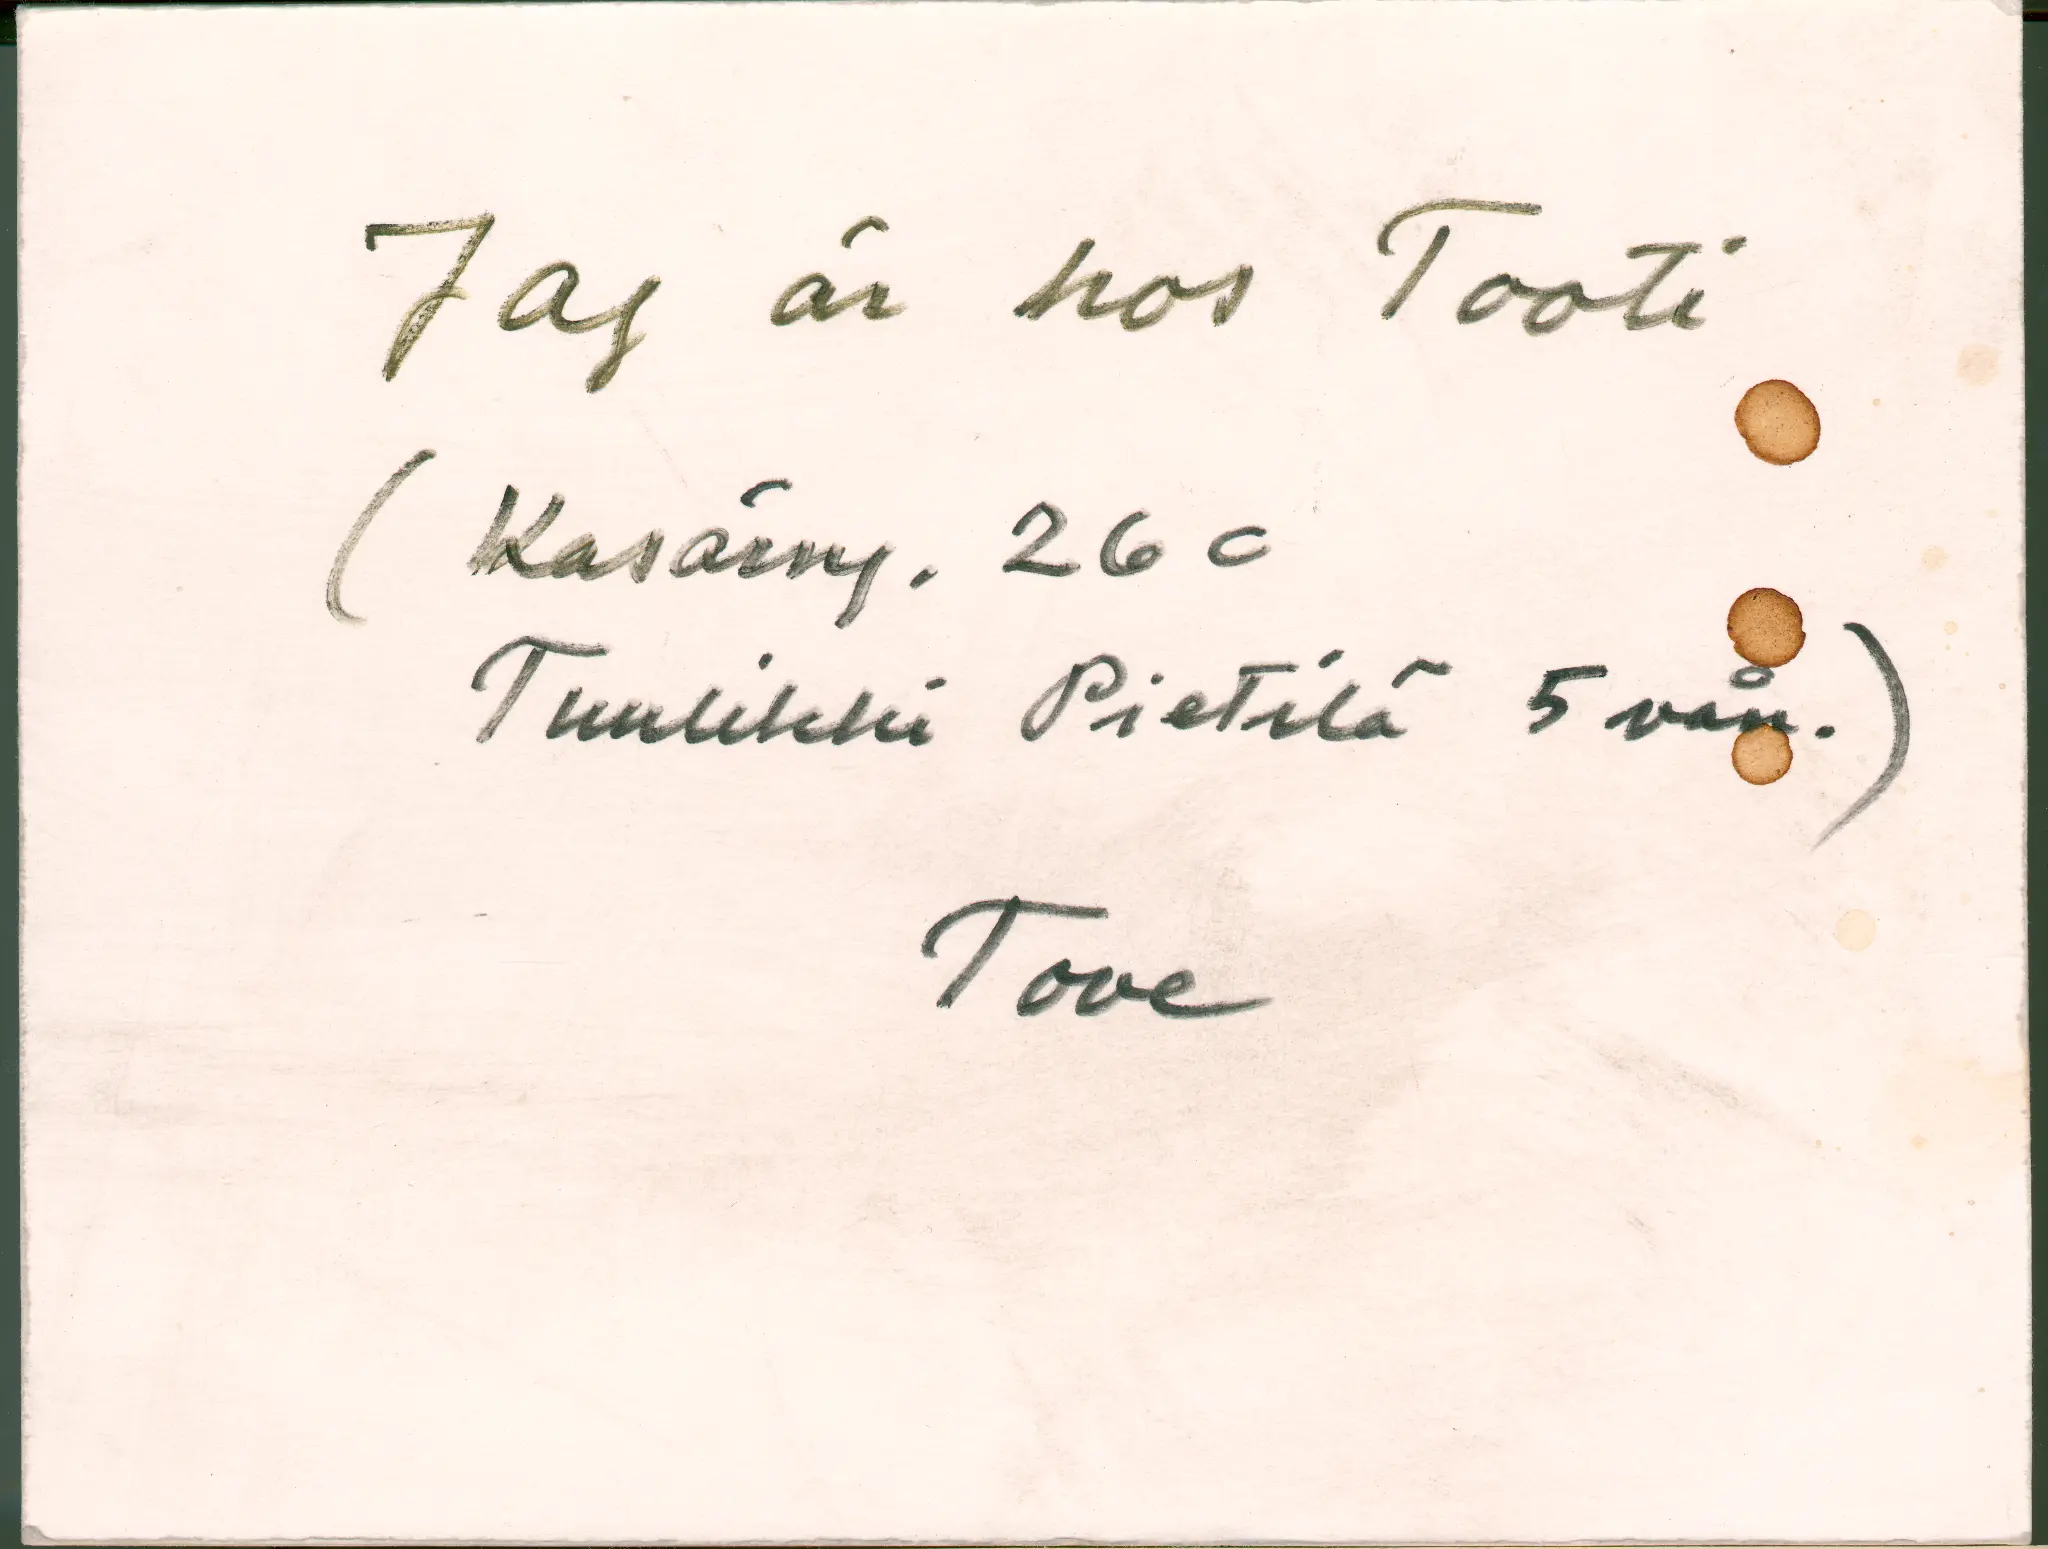 Jag är hos Tooti
(Kasärng. 26 c
Tuulikki Pietilä 5 vån.)
Tove